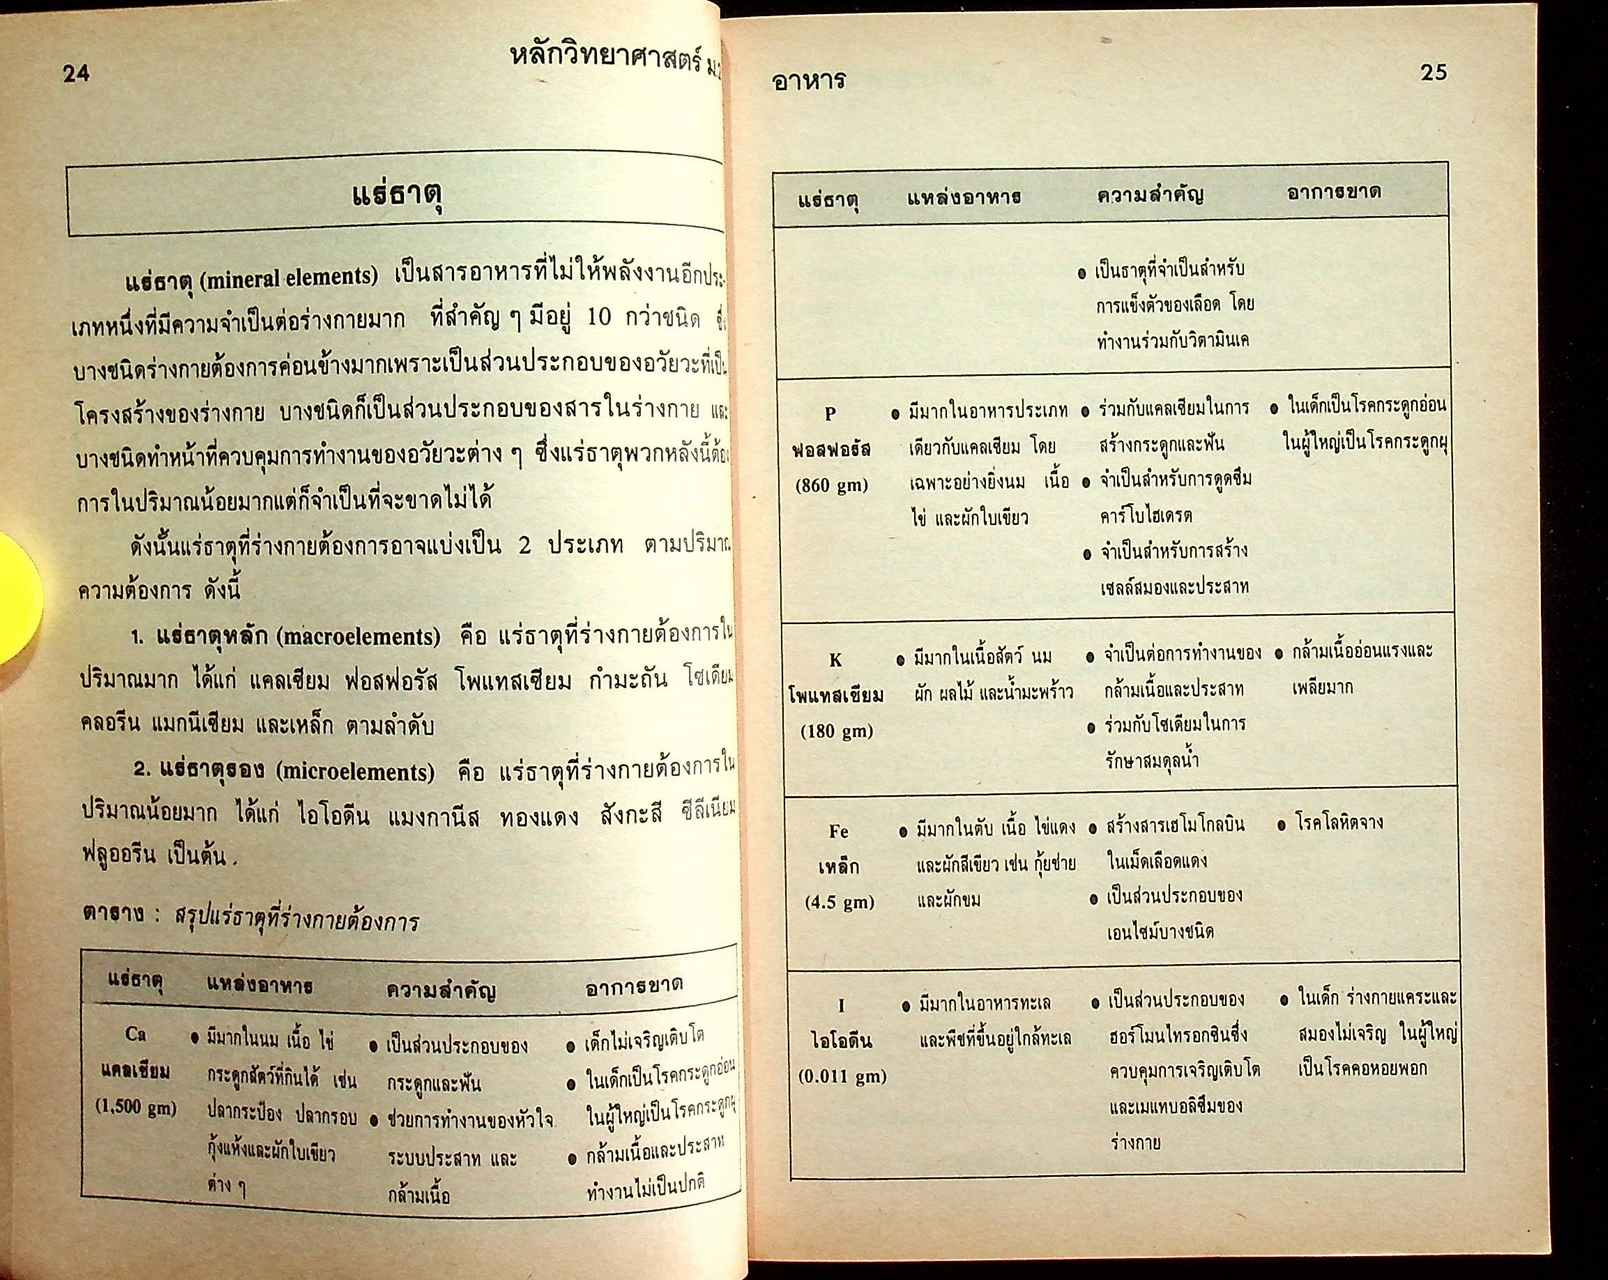 24
หลักวิทยาศาสตร์
แร่ธาตุ
แร่ธาตุ (mineral elements) เป็นสารอาหารที่ไม่ให้พลังงานอีกประ-
เภทหนึ่งที่มีความจำเป็นต่อร่างกายมาก ที่สำคัญ ๆ มีอยู่ 10 กว่าชนิด
บางชนิดร่างกายต้องการค่อนข้างมากเพราะเป็นส่วนประกอบของอวัยวะที่เป็น
โครงสร้างของร่างกาย บางชนิดก็เป็นส่วนประกอบของสารในร่างกาย และ
บางชนิดทำหน้าที่ควบคุมการทำงานของอวัยวะต่าง ๆ ซึ่งแร่ธาตุพวกหลังนี้ต้อง
การในปริมาณน้อยมากแต่ก็จำเป็นที่จะขาดไม่ได้
ดังนั้นแร่ธาตุที่ร่างกายต้องการอาจแบ่งเป็น 2 ประเภท ตามปริมาณ
ความต้องการ ดังนี้
1. แร่ธาตุหลัก (macroelements) คือ แร่ธาตุที่ร่างกายต้องการใน
ปริมาณมาก ได้แก่ แคลเซียม ฟอสฟอรัส โพแทสเซียม กำมะถัน โซเดียม
คลอรีน แมกนีเซียม และเหล็ก ตามลำดับ
2. แร่ธาตุรอง (microelements) คือ แร่ธาตุที่ร่างกายต้องการใน
ปริมาณน้อยมาก ได้แก่ ไอโอดีน แมงกานีส ทองแดง สังกะสี ซีลีเนียม
ฟลูออรีน เป็นต้น .
ตาราง : สรุปแร่ธาตุที่ร่างกายต้องการ
แร่ธาตุ แหล่งอาหาร ความสำคัญ อาการขาด
Ca ● มีมากในนม เนื้อ ไข่ ● เป็นส่วนประกอบของ ● เด็กไม่เจริญเติบโต
แคลเซียม กระดูกสัตว์ที่กินได้ เช่น กระดูกและฟัน ● ในเด็กเป็นโรคกระดูกอ่อน
(1,500 gm) ปลากระป๋อง ปลากรอบ ● ช่วยการทำงานของหัวใจ ในผู้ใหญ่เป็นโรคกระดูกผุ
กุ้งแห้งและผักใบเขียว ระบบประสาท และ ● กล้ามเนื้อและประสาท
ต่าง ๆ กล้ามเนื้อ ทำงานไม่เป็นปกติ
อาหาร
25
แร่ธาตุ แหล่งอาหาร ความสำคัญ อาการขาด
● เป็นธาตุที่จำเป็นสำหรับ
การแข็งตัวของเลือด โดย
ทำงานร่วมกับวิตามินเค
P ● มีมากในอาหารประเภท ● ร่วมกับแคลเซียมในการ ● ในเด็กเป็นโรคกระดูกอ่อน
ฟอสฟอรัส เดียวกับแคลเซียม โดย สร้างกระดูกและฟัน ในผู้ใหญ่เป็นโรคกระดูกผุ
(860 gm) เฉพาะอย่างยิ่งนม เนื้อ ● จำเป็นสำหรับการดูดซึม
ไข่ และผักใบเขียว คาร์โบไฮเดรต
● จำเป็นสำหรับการสร้าง
เซลล์สมองและประสาท
K ● มีมากในเนื้อสัตว์ นม ● จำเป็นต่อการทำงานของ ● กล้ามเนื้ออ่อนแรงและ
โพแทสเซียม ผัก ผลไม้ และน้ำมะพร้าว กล้ามเนื้อและประสาท เพลียมาก
(180 gm) ● ร่วมกับโซเดียมในการ
รักษาสมดุลน้ำ
Fe ● มีมากในตับ เนื้อ ไข่แดง ● สร้างสารเฮโมโกลบิน ● โรคโลหิตจาง
เหล็ก และผักสีเขียว เช่น กุ้ยช่าย ในเม็ดเลือดแดง
(4.5 gm) และผักขม ● เป็นส่วนประกอบของ
เอนไซม์บางชนิด
I ● มีมากในอาหารทะเล ● เป็นส่วนประกอบของ ● ในเด็ก ร่างกายแคระและ
ไอโอดีน และพืชที่ขึ้นอยู่ใกล้ทะเล ฮอร์โมนไทรอกซินซึ่ง สมองไม่เจริญ ในผู้ใหญ่
(0.011 gm) ควบคุมการเจริญเติบโต เป็นโรคคอหอยพอก
และเมแทบอลิซึมของ
ร่างกาย